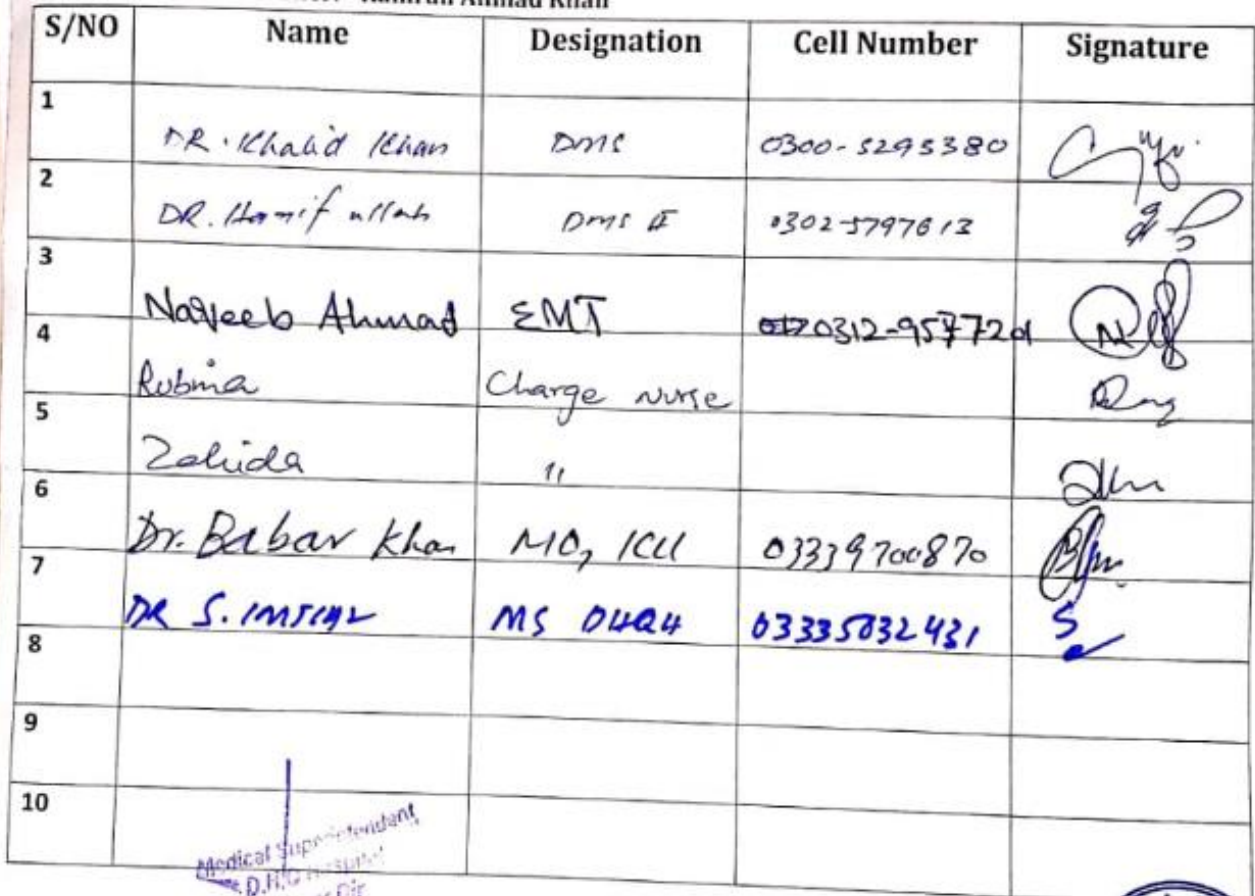 Kamran Ahmad Khan
S/NO Name Designation Cell Number Signature
1 DR. Khalid Khan DMS 0300-5295380
2 DR. Hanif ullah DMS II 0302-5797613
3 Nayeeb Ahmad EMT 0312-9577201
4 Rubina Charge Nurse
5 Zahida "
6 Dr. Babar Khan MO, ICU 03339700870
7 DR S. IMTIAZ MS DHQH 03335032431
8
9
10
Medical Superintendent
D.H.Q Hospital
Dir